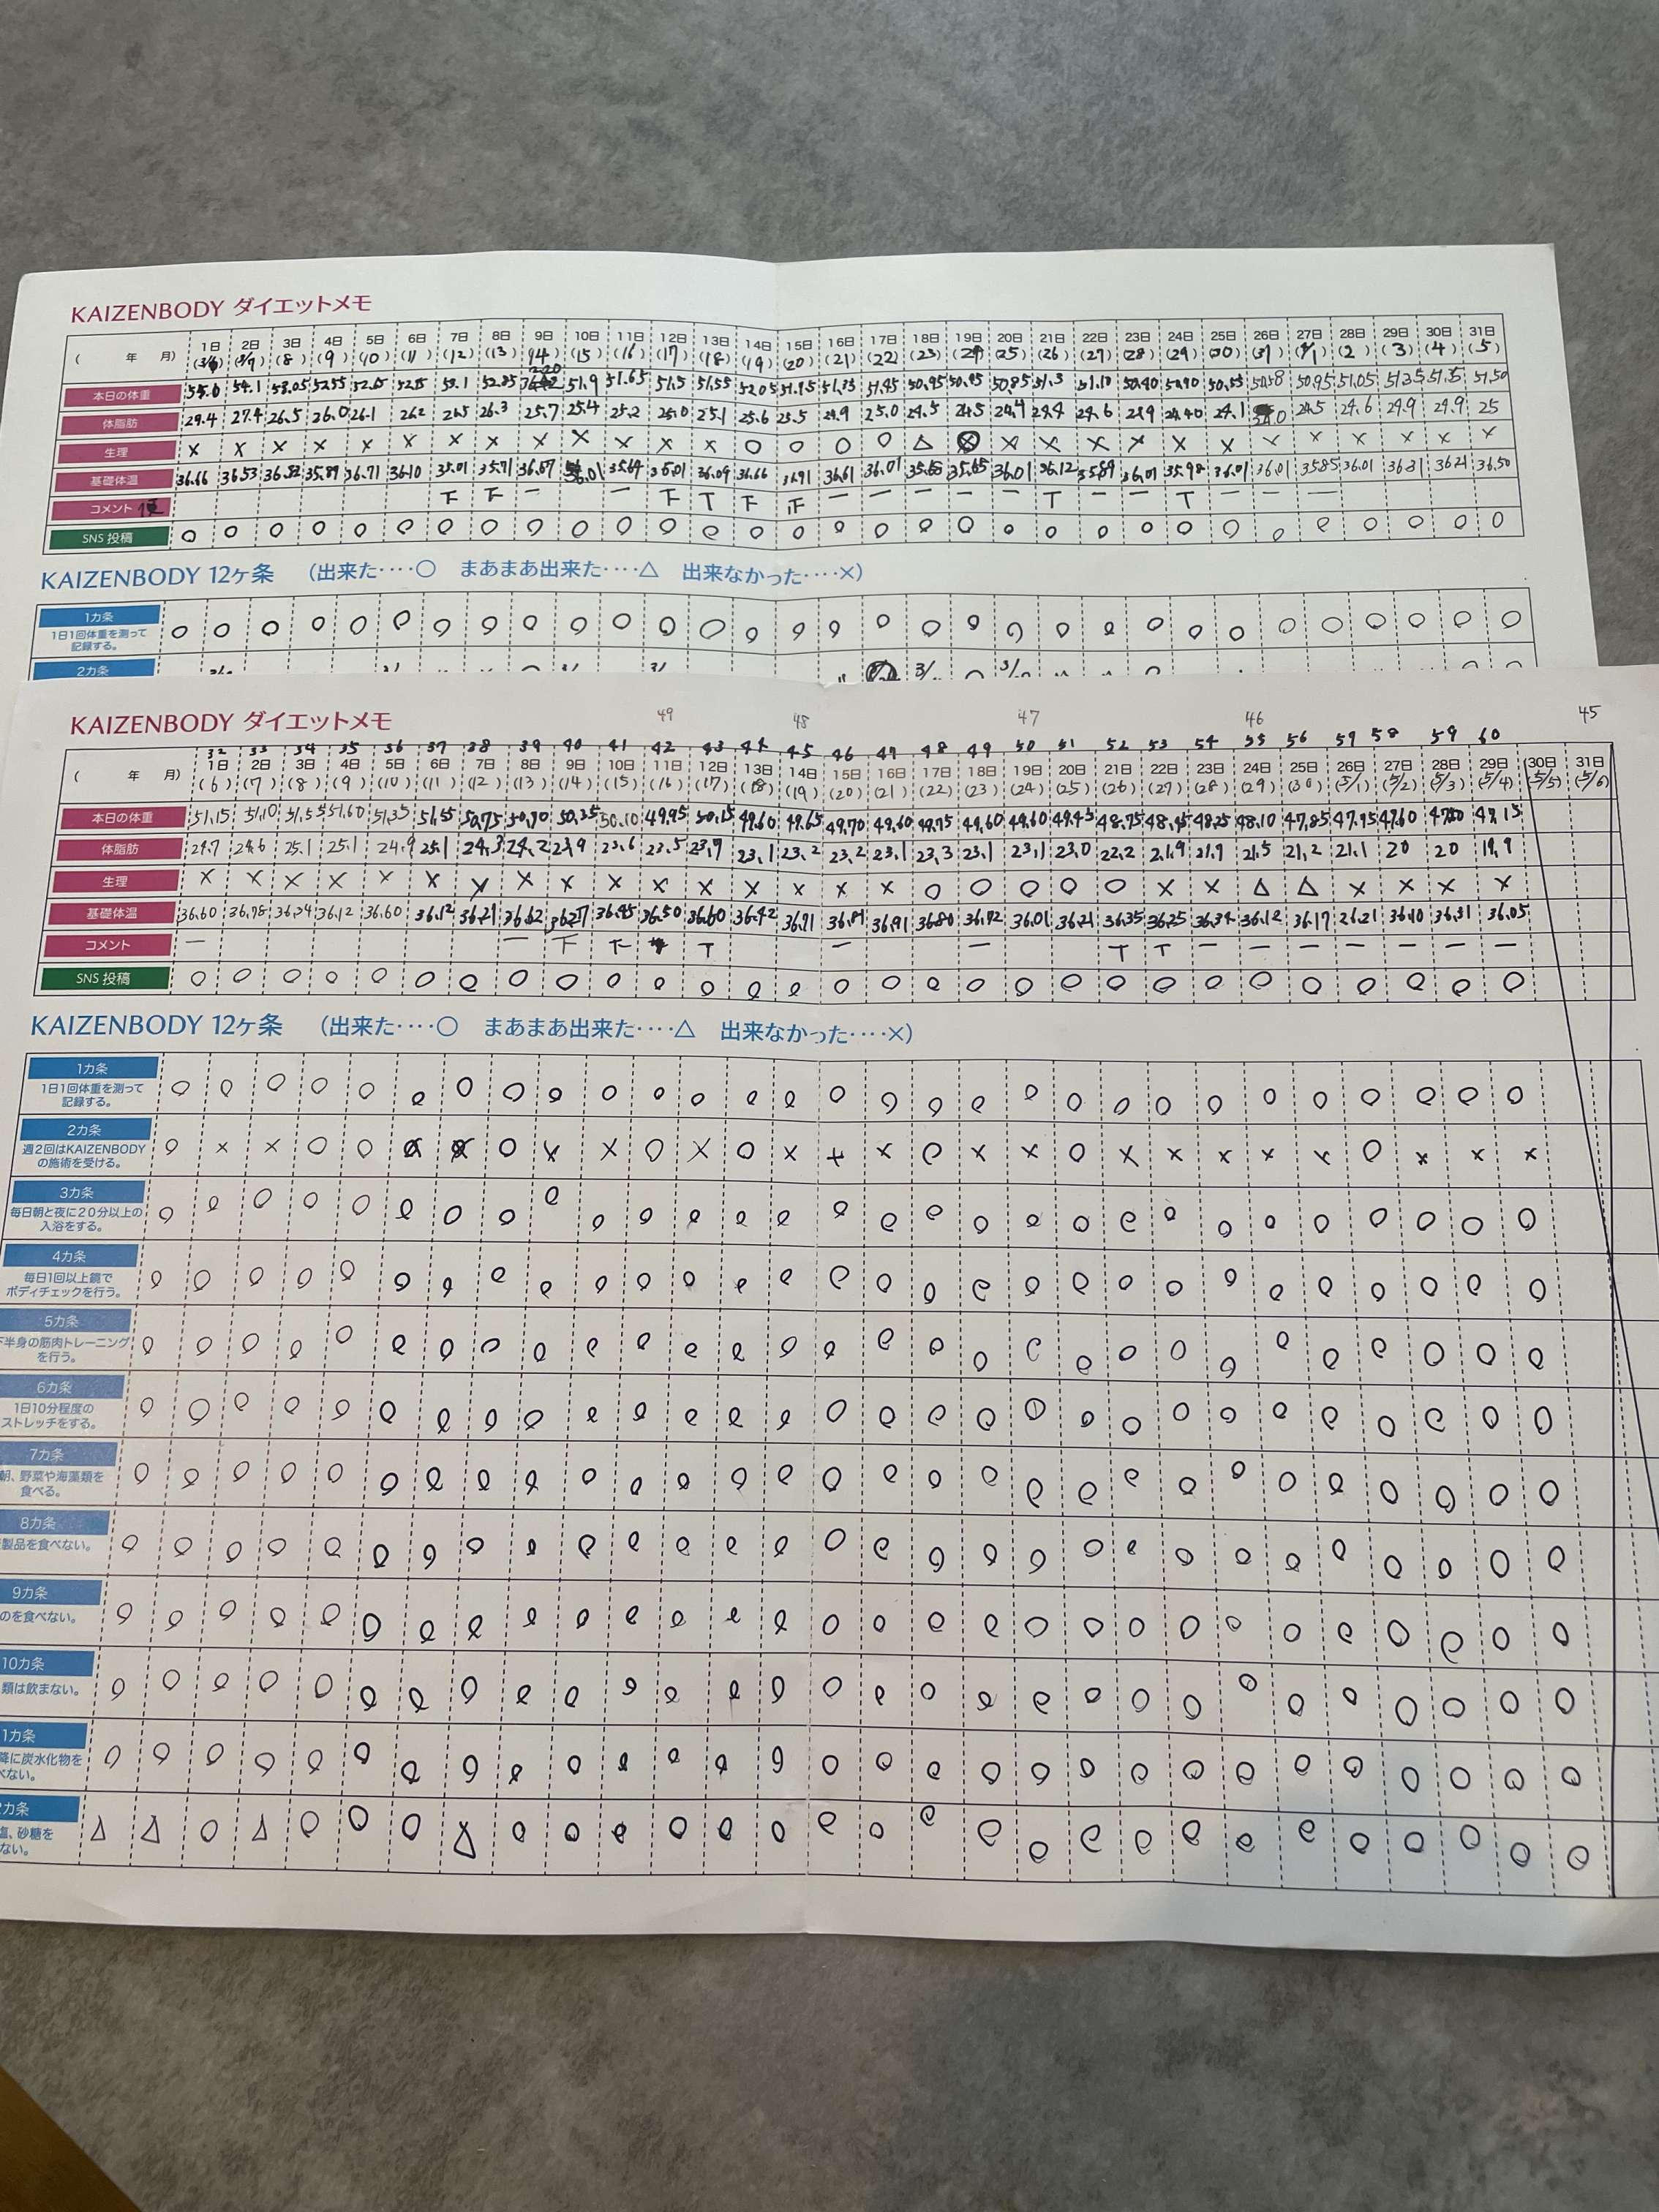 KAIZENBODY ダイエットメモ
( 年 月) 1日 2日 3日 4日 5日 6日 7日 8日 9日 10日 11日 12日 13日 14日 15日 16日 17日 18日 19日 20日 21日 22日 23日 24日 25日 26日 27日 28日 29日 30日 31日
(8) (9) (10) (11) (12) (13) (14) (15) (16) (17) (18) (19) (20) (21) (22) (23) (25) (26) (27) (28) (29) (30) (31) (2) (3) (4) (5)
本日の体重 54.1 53.05 52.55 53.1 52.85 51.9 51.65 51.5 51.55 52.05 51.45 50.95 50.95 50.85 51.3 51.10 50.90 50.55 50.58 50.95 51.05 51.35 51.50
体脂肪 29.4 27.4 26.5 26.0 26.1 26.2 26.5 26.3 25.7 25.4 25.2 25.0 25.1 25.6 25.5 24.9 25.0 24.5 24.5 24.4 24.4 24.6 24.40 24.1 24.5 24.6 24.9 24.9 25
生理 × × × × × × × × × × × × × ○ ○ ○ ○ △ × × × × × × × × × × × ×
基礎体温 36.66 36.53 35.89 36.71 36.10 35.01 35.71 36.01 35.64 36.09 36.66 36.01 35.65 36.01 36.12 35.89 36.01 35.98 36.01 36.01 35.85 36.01 36.31 36.21 36.50
コメント 便 下 下 一 一 下 T 下 正 一 一 一 一 一 T 一 一 T 一 一 一
SNS 投稿 ○ ○ ○ ○ ○ ○ ○ ○ ○ ○ ○ ○ ○ ○ ○ ○ ○ ○ ○ ○ ○ ○ ○ ○ ○ ○ ○ ○ ○ ○ ○
KAIZENBODY 12ケ条 (出来た‥‥○ まあまあ出来た‥‥△ 出来なかった‥‥×)
1カ条
1日1回体重を測って
記録する。 ○ ○ ○ ○ ○ ○ ○ ○ ○ ○ ○ ○ ○ ○ ○ ○ ○ ○ ○ ○ ○ ○ ○ ○ ○ ○ ○ ○ ○ ○ ○
2カ条
KAIZENBODY ダイエットメモ 49 48 47 46 45
32 33 34 35 36 37 38 39 40 41 42 43 44 45 46 47 48 49 50 51 52 53 54 55 56 57 58 59 60
( 年 月) 1日 2日 3日 4日 5日 6日 7日 8日 9日 10日 11日 12日 13日 14日 15日 16日 17日 18日 19日 20日 21日 22日 23日 24日 25日 26日 27日 28日 29日 30日 31日
(6) (7) (8) (9) (10) (11) (12) (13) (14) (15) (16) (17) (18) (19) (20) (21) (22) (23) (24) (25) (26) (27) (28) (29) (30) (5/1) (5/2) (5/3) (5/4) (5/5) (5/6)
本日の体重 51.15 51.10 51.55 51.60 51.35 51.55 50.75 50.90 50.35 50.10 49.95 50.15 49.60 49.65 49.70 49.60 49.75 49.60 49.60 49.45 48.75 48.45 48.25 48.10 47.85 47.75 47.60 47.15
体脂肪 24.7 24.6 25.1 25.1 24.9 25.1 24.3 24.2 23.9 23.6 23.5 23.9 23.1 23.2 23.2 23.1 23.3 23.1 23.1 23.0 22.2 21.9 21.9 21.5 21.2 21.1 20 20 19.9
生理 × × × × × × × × × × × × × × × × ○ ○ ○ ○ ○ × × △ △ × × × ×
基礎体温 36.60 36.78 36.34 36.12 36.60 36.12 36.21 36.62 36.27 36.45 36.50 36.60 36.42 36.71 36.81 36.91 36.80 36.72 36.01 36.21 36.35 36.25 36.34 36.12 36.17 26.21 36.10 36.31 36.05
コメント 一 一 下 下 T 一 一 T T 一 一 一 一 一 一 一
SNS 投稿 ○ ○ ○ ○ ○ ○ ○ ○ ○ ○ ○ ○ ○ ○ ○ ○ ○ ○ ○ ○ ○ ○ ○ ○ ○ ○ ○ ○ ○
KAIZENBODY 12ケ条 (出来た‥‥○ まあまあ出来た‥‥△ 出来なかった‥‥×)
1カ条
1日1回体重を測って
記録する。 ○ ○ ○ ○ ○ ○ ○ ○ ○ ○ ○ ○ ○ ○ ○ ○ ○ ○ ○ ○ ○ ○ ○ ○ ○ ○ ○ ○ ○
2カ条
週2回はKAIZENBODY
の施術を受ける。 ○ × × ○ ○ ○ × × ○ × ○ × × × ○ × × ○ × × × × × ○ × × ×
3カ条
毎日朝と夜に20分以上の
入浴をする。 ○ ○ ○ ○ ○ ○ ○ ○ ○ ○ ○ ○ ○ ○ ○ ○ ○ ○ ○ ○ ○ ○ ○ ○ ○ ○ ○ ○ ○
4カ条
毎日1回以上鏡で
ボディチェックを行う。 ○ ○ ○ ○ ○ ○ ○ ○ ○ ○ ○ ○ ○ ○ ○ ○ ○ ○ ○ ○ ○ ○ ○ ○ ○ ○ ○ ○ ○
5カ条
下半身の筋肉トレーニング
を行う。 ○ ○ ○ ○ ○ ○ ○ ○ ○ ○ ○ ○ ○ ○ ○ ○ ○ ○ ○ ○ ○ ○ ○ ○ ○ ○ ○ ○ ○
6カ条
1日10分程度の
ストレッチをする。 ○ ○ ○ ○ ○ ○ ○ ○ ○ ○ ○ ○ ○ ○ ○ ○ ○ ○ ○ ○ ○ ○ ○ ○ ○ ○ ○ ○ ○
7カ条
朝、野菜や海藻類を
食べる。 ○ ○ ○ ○ ○ ○ ○ ○ ○ ○ ○ ○ ○ ○ ○ ○ ○ ○ ○ ○ ○ ○ ○ ○ ○ ○ ○ ○ ○
8カ条
製品を食べない。 ○ ○ ○ ○ ○ ○ ○ ○ ○ ○ ○ ○ ○ ○ ○ ○ ○ ○ ○ ○ ○ ○ ○ ○ ○ ○ ○ ○ ○
9カ条
のを食べない。 ○ ○ ○ ○ ○ ○ ○ ○ ○ ○ ○ ○ ○ ○ ○ ○ ○ ○ ○ ○ ○ ○ ○ ○ ○ ○ ○ ○ ○
10カ条
類は飲まない。 ○ ○ ○ ○ ○ ○ ○ ○ ○ ○ ○ ○ ○ ○ ○ ○ ○ ○ ○ ○ ○ ○ ○ ○ ○ ○ ○ ○ ○
1カ条
降に炭水化物を
べない。 ○ ○ ○ ○ ○ ○ ○ ○ ○ ○ ○ ○ ○ ○ ○ ○ ○ ○ ○ ○ ○ ○ ○ ○ ○ ○ ○ ○ ○
カ条
塩、砂糖を
ない。 △ △ ○ △ ○ ○ ○ △ ○ ○ ○ ○ ○ ○ ○ ○ ○ ○ ○ ○ ○ ○ ○ ○ ○ ○ ○ ○ ○